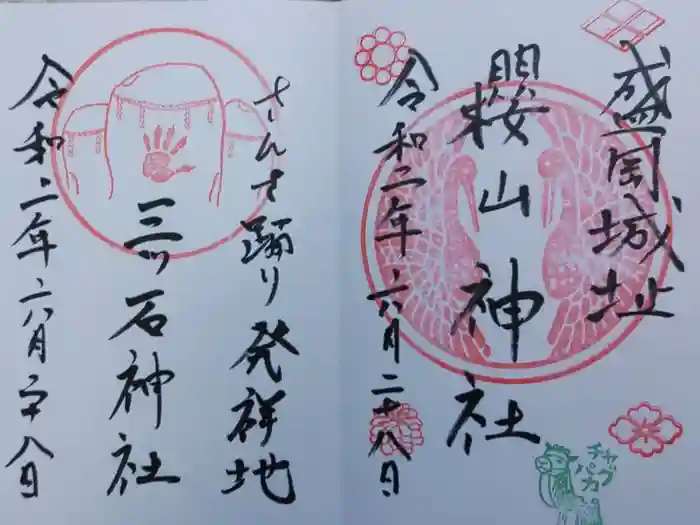 盛岡城址
櫻山神社
令和二年六月二十八日
チャグ
パカ
さんさ踊り発祥地
三ツ石神社
令和二年六月二十八日